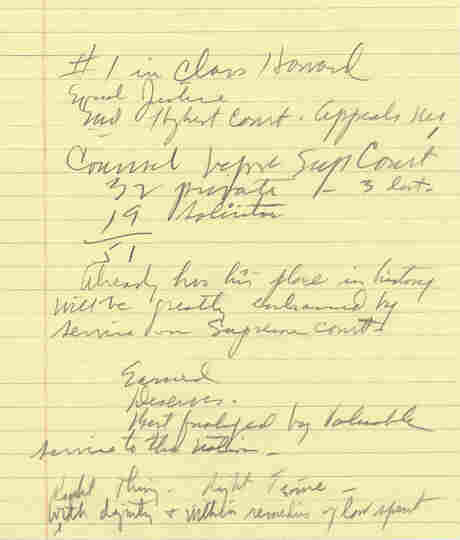 # 1 in Class Howard
Equal Justice
2nd Highest Court. Appeals
Counsel before Sup Court
32 private - 3 lost.
19 Solicitor
51
Already has his place in history
will be greatly enhanced by
service on Supreme Court.
Earned
Deserves.
Best qualified by valuable
service to the nation -
Right thing. Right Time -
With dignity & within remedies of law spent